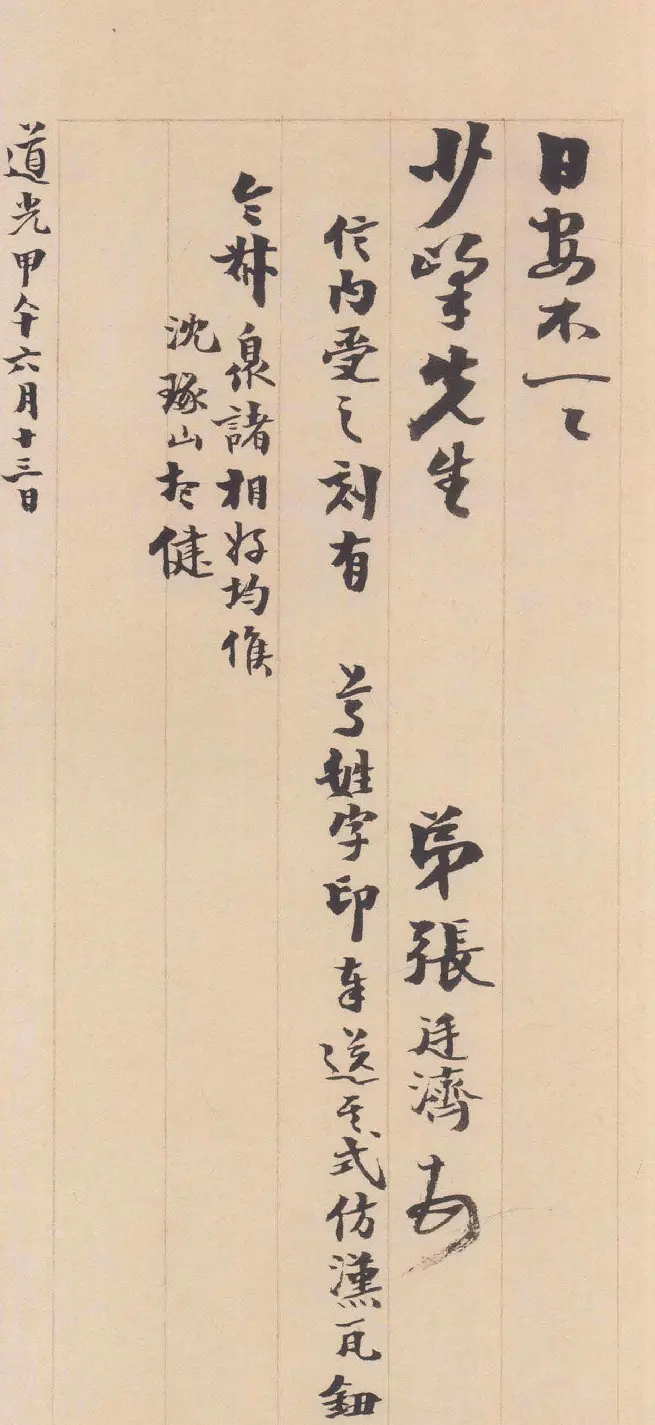 日安不一一
少峯先生 弟張廷濟
信內受之刻有 号姓字印奉送其式仿漢瓦鈕
令叔泉諸相好均候
沈琢山
健
道光甲午六月十三日